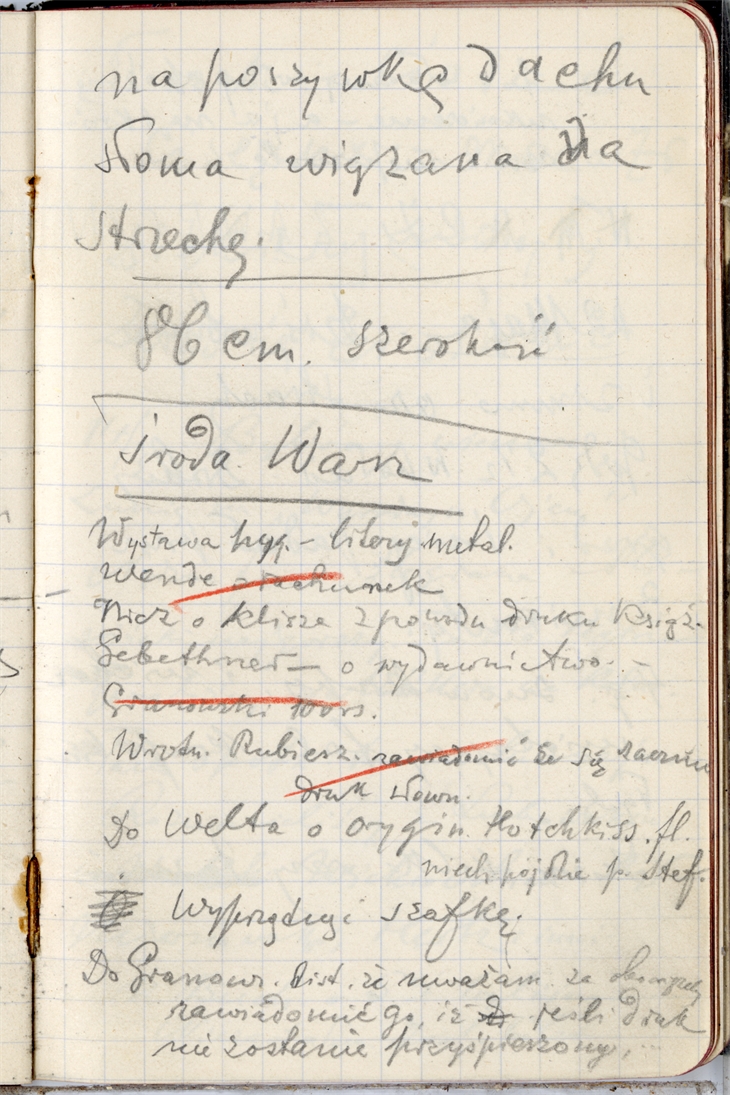 na poszywkę dachu
słoma wiązana na
strzechę.
86 cm. szerokość
środa. Warsz
Wystawa hyg. – literj metal.
Wende o rachunek
Nicz o klisze z powodu druku Książ.
Gebethner – o wydawnictwo. –
100 rs.
Wrotn. Rubiesz. zawiadomić że się
druk słown.
Do Welta o orygin. Hotchkiss. fl.
niech pójdzie p. Stef.
szafkę
Do Granowr. list. że uważam za
zawiadomić go, iż jeśli druk
nie zostanie przyśpieszony, ...